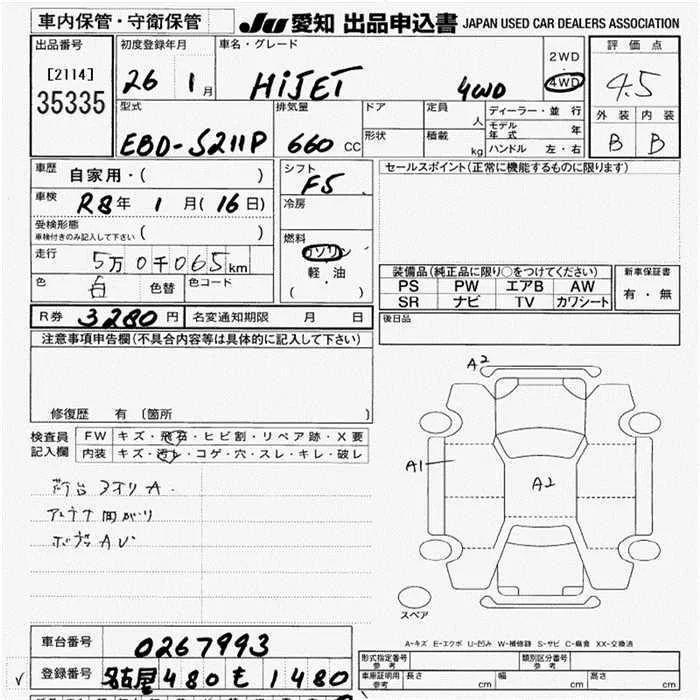 車内保管・守衛保管
JU 愛知 出品申込書 JAPAN USED CAR DEALERS ASSOCIATION
出品番号
[2114]
35335
初度登録年月
26 1月
車名・グレード
HiJET 4WD
2WD
・
4WD
評価点
4.5
外装 内装
B B
型式
EBD-S211P
排気量
660 cc
ドア
形状
定員
人
積載
kg
ディーラー・並行
モデル年式 年
ハンドル 左・右
車歴 自家用・( )
車検 R8年 1月(16日)
受検形態
車検付きのみ記入して下さい ( )
走行 5万0千065km
色 白 色替 色コード
シフト
F5
冷房
燃料
ガソリン
軽・油
( )
セールスポイント(正常に機能するものに限ります)
装備品(純正品に限り○をつけてください)
PS PW エアB AW
SR ナビ TV カワシート
新車保証書
有・無
R券 3280円 名変通知期限 月 日
後日品
注意事項申告欄(不具合内容等は具体的に記入して下さい)
修復歴 有 〔箇所 〕
検査員
記入欄
FW キズ・飛石・ヒビ割・リペア跡・X要
内装 キズ・汚レ・コゲ・穴・スレ・キレ・破レ
アンテナ曲がり
A2
A1
A2
スペア
A-キズ E-エクボ U-凹み W-補修跡 S-サビ C-腐食 XX-交換済
車台番号 0267993
登録番号 名古屋 480 も 1480
形式指定番号
参考
類別区分番号
参考
車庫証明用
参考
長さ cm 幅 cm 高さ cm